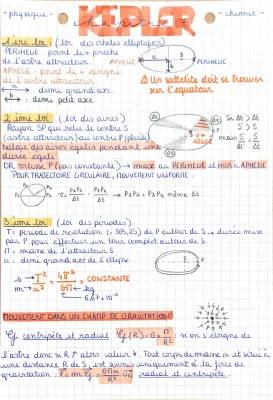 - physique -
- chimie -
chapitre 7
KEPLER
1 ère loi (loi des orbites elliptiques)
PERIHELIE point le + proche
de l'astre attracteur.
APHELIE : point le + éloigné
de l'astre attracteur
APHELIE
PERIHELIE
a → demi grand axe
b → demi petit axe
⚠ Un satellite doit se trouver
sur l'équateur
2 ème loi (loi des aires)
Rayon SP qui relie le centre S
(astre attracteur) au centre P (planète)
balaye des aires égales pendant une
durée égale
Si Δt' > Δt
S' > S
mais S'/Δt' = S/Δt
OR vitesse P (pas constante) → max au PERIHELIE et min à APHELIE
POUR TRAJECTOIRE CIRCULAIRE, MOUVEMENT UNIFORME :
v = P₁P₂/Δt = P₃P₄/Δt → P₁P₂ P₃P₄ même Δt
3 ème loi (loi des périodes)
T = période de revolution (= 365,25) de P autour de S → durée mise
par P pour effectuer un tour complet autour de S.
M = masse de l'astre attracteur
a : demi grand axe de l'ellipse
s → T²/a³ = 4π²/GM = CONSTANTE
m →
← kg
MOUVEMENT DANS UN CHAMP DE GRAVITATION
centripète et radial
(R) = G × M/R²
si on s'éloigne de
l'astre donc si R ↗ alors valeur ↓. Tout corps de masse m et situé à
une distance R de S, est soumis uniquement à la force de
gravitation :
radial et centripète